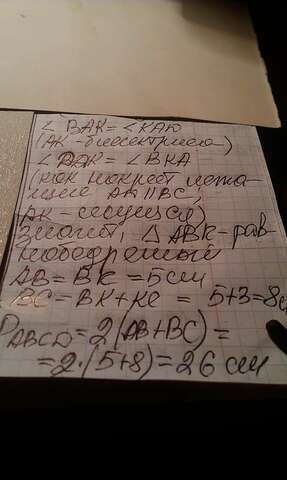 ∠ BAK = ∠KAD
(AK - биссектриса)
∠ DAK = ∠ BKA
(как накрест лежа-
щие AD || BC,
AK - секущая)
Значит, △ ABK - рав-
нобедренный
AB = BK = 5см
BC = BK + KC = 5+3=8см
P ABCD = 2(AB+BC) =
= 2·(5+8) = 26 см